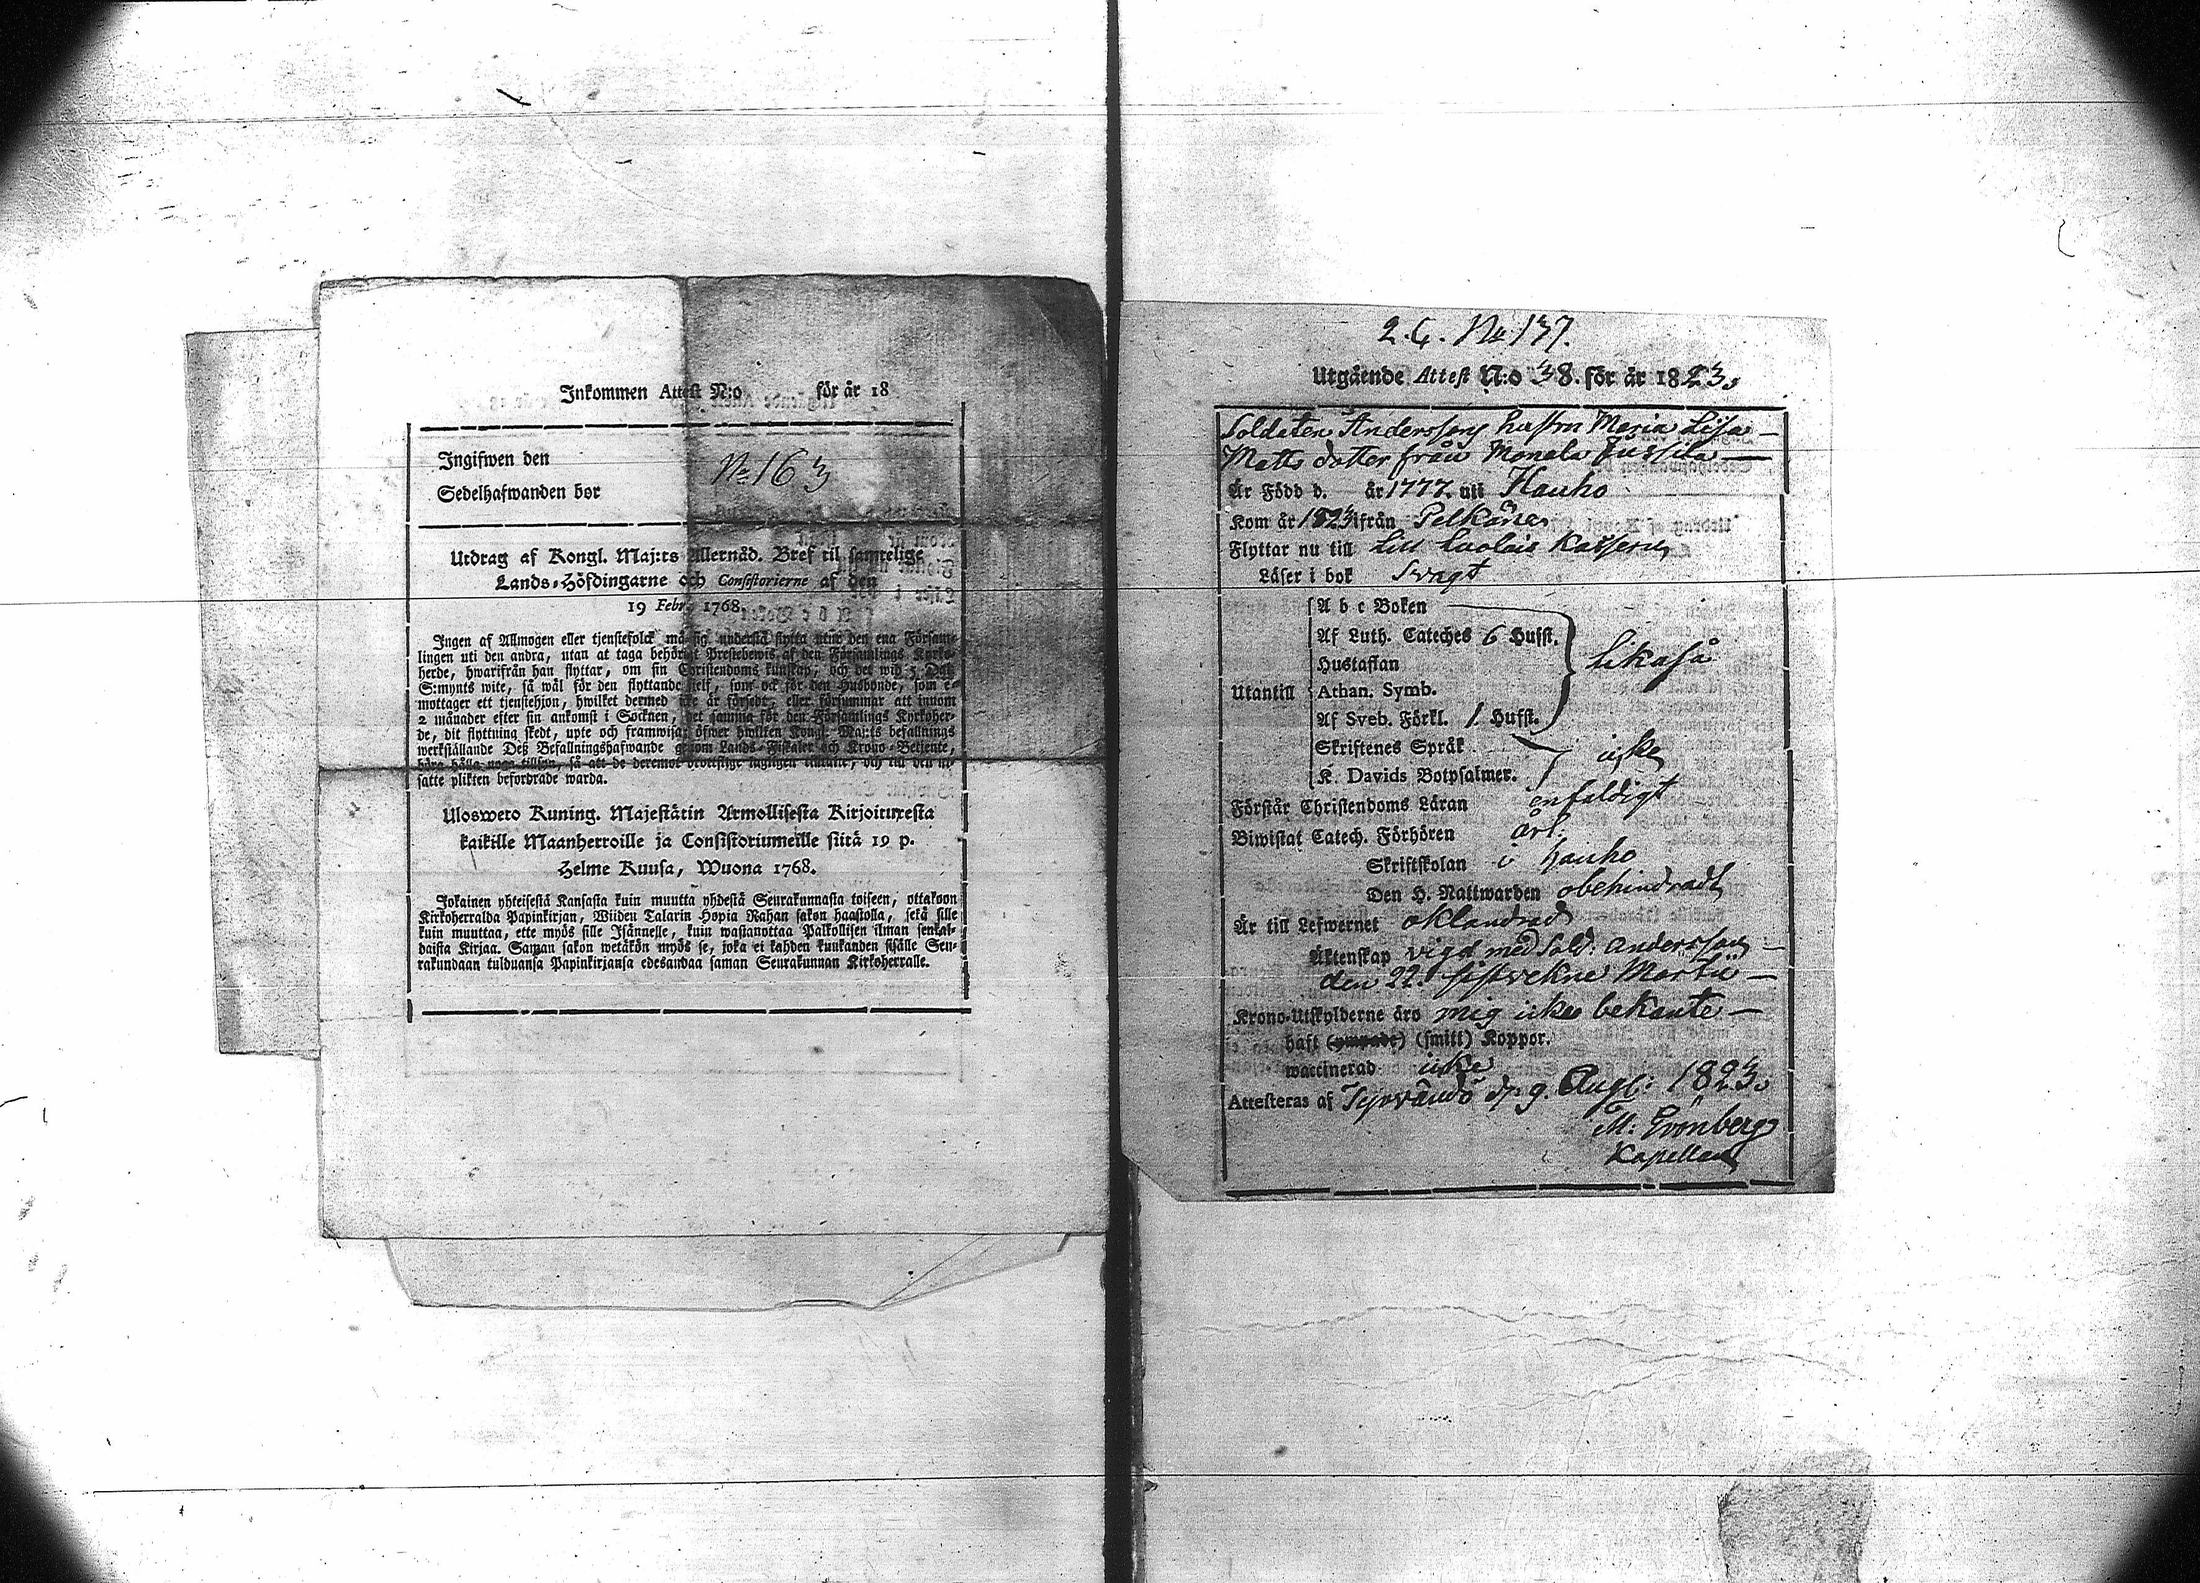 Inkommen Attest N:o för år 18
Ingifwen den
No 163
Sedelhafwanden bor
Utdrag af Kongl. Maj:ts Allernåd. Bref til samtelige
Lands-Höfdingarne och Consistorierne af den
19 Febr. 1768.
Ingen af Allmogen eller tjenstefolck må sig understå flytta utur den ena Försam-
lingen uti den andra, utan at taga behörigt Prestebewis af den Församlings Kyrko-
herde, hwarifrån han flyttar, om sin Christendoms kunskap, och det wid 5 Dal.
S:mynts wite, så wäl för den flyttande sielf, som ock för den Husbonde, som e-
mottager ett tjenstehjon, hwilket dermed icke är försedt, eller försummar att innom
2 månader efter sin ankomst i Socknen, det samma för den Församlings Kyrkoher-
de, dit flyttning skedt, upte och framwisa; öfwer hwilken Kongl. Maj:ts befallnings
werkställande Deß Befallningshafwande genom Lands-Fiskaler och Krono-Betjente,
böra hålla noga tillsyn, så att de deremot brottslige och till den ut-
satte plikten befordrade warda.
Ulosweto Kuning. Majestätin Armollisesta Kirjoituxesta
kaikille Maanherroille ja Consistoriumeille siitä 19 p.
Helme Kuusa, Wuona 1768.
Jokainen yhteisestä Kansasta kuin muutta yhdestä Seurakunnasta toiseen, ottakoon
Kirkoherralda Papinkirjan, Wiiden Talarin Hopia Rahan sakon haastolla, sekä sille
kuin muuttaa, ette myös sille Isännelle, kuin wastanottaa Palkollisen ilman senkal-
daista Kirjaa. Saman sakon wetäkön myös se, joka ei kahden kuukanden sisälle Seu-
rakundaan tulduansa Papinkirjansa edesandaa saman Seurakunnan Kirkoherralle.
2. C. No 137.
Utgående Attest N:o 38. för år 1823.
Soldaten Anderssons hustru Maria Lisa
Matts dotter från Monala Jussila
Är Född d. år 1777. uti Hauho
Kom år 1823 ifrån Pelkäne
Flyttar nu till Lill
Läser i bok svagt
A b c Boken
Af Luth. Cateches 6 Hufst.
Hustaflan
likaså
Utantill
Athan. Symb.
Af Sveb. Förkl. 1 Hufst.
Skriftenes Språk
icke
K. Davids Botpsalmer.
Förstår Christendoms Läran enfaldigt
Biwistat Catech. Förhören årl.
Skriftskolan i Hauho
Den H. Nattwarden obehindradt
Är till Lefwernet oklandrad
Äktenskap vigd med Sold. Andersson
den 22. sistvekne Martii
Krono-Utskylderne äro mig icke bekante
haft (ympade) (smitt) Koppor.
waccinerad icke
Attesteras af Tyrvändö d. 9. Aug: 1823.
M: Grönberg
Kapellan